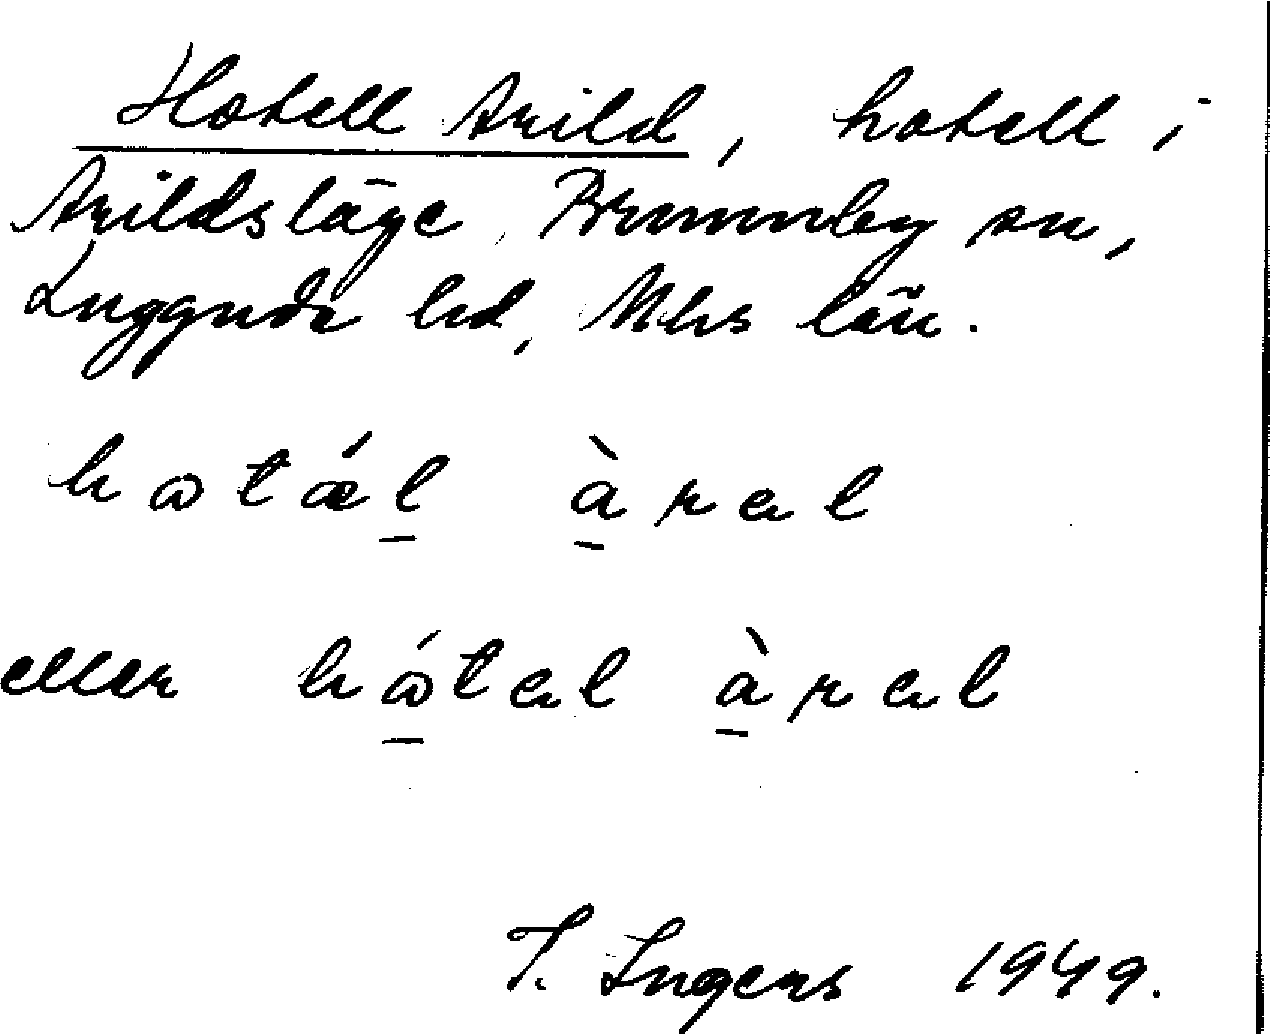 Hotell Arild, hotell i
Arildsläge, Brunnby sn,
Luggude hd, Mhs län.
hωtǽl àrəl
eller hώtəl àrəl
I. Ingers 1949.